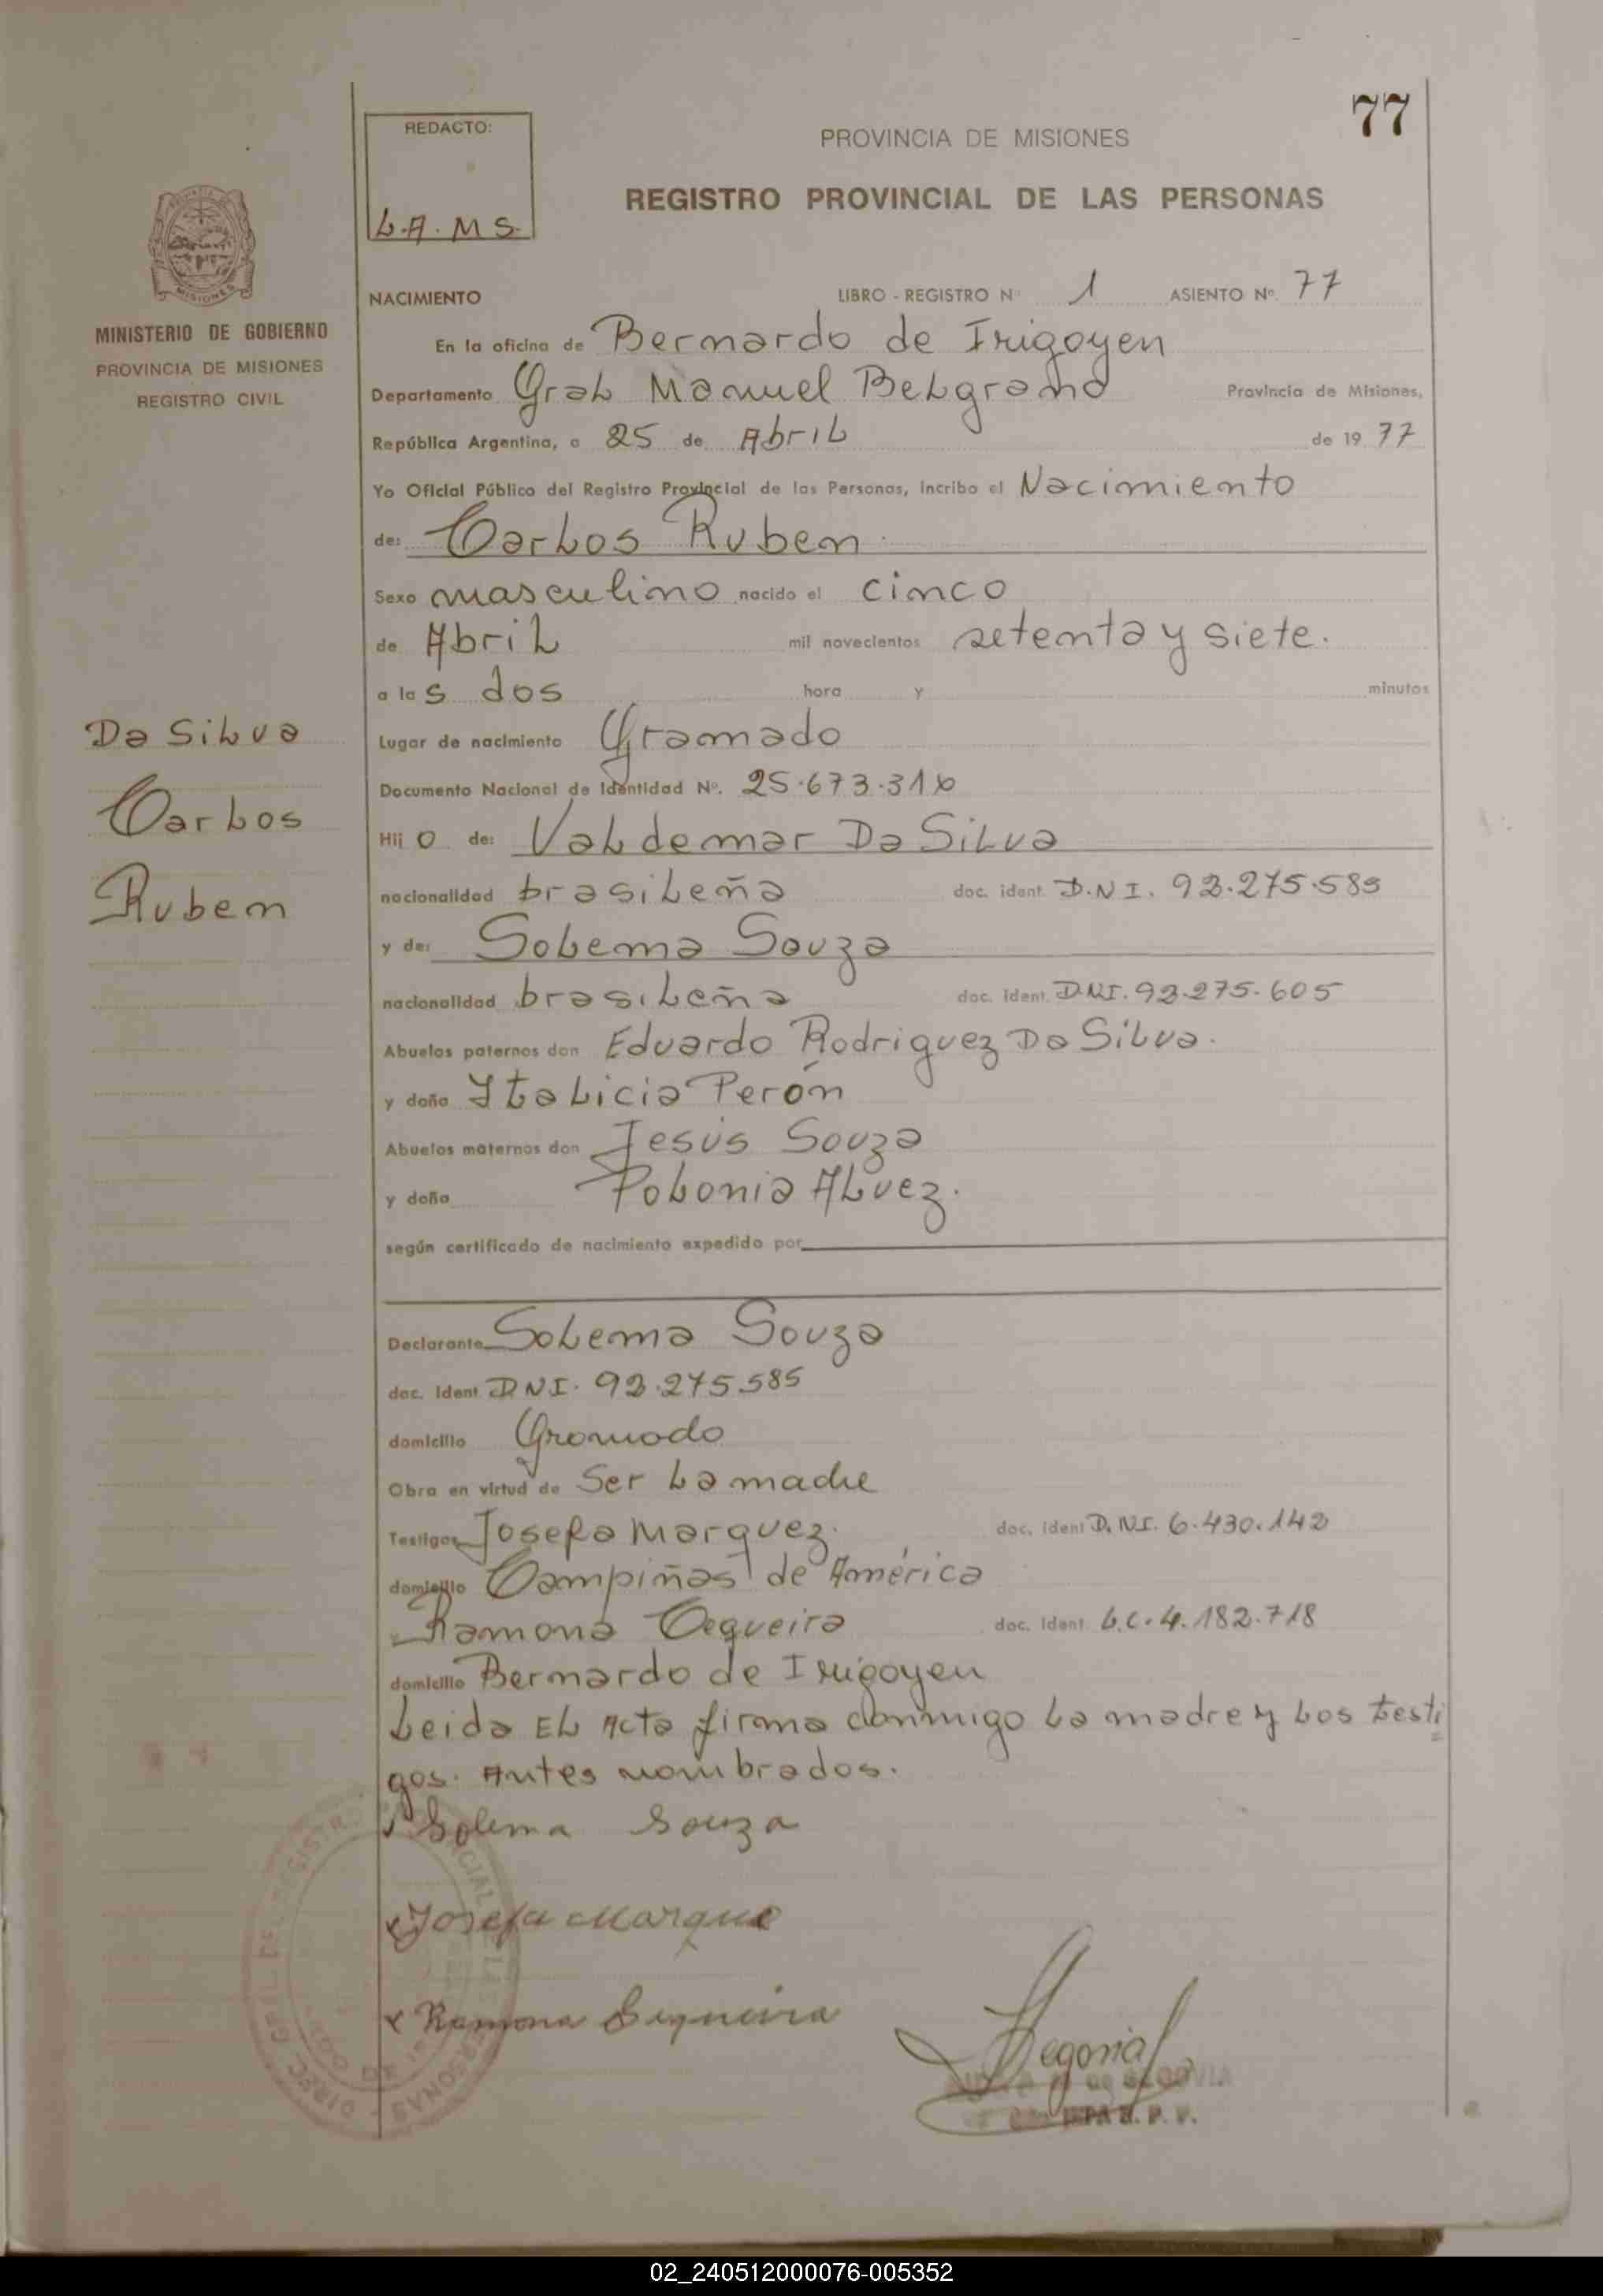 77
REDACTO:
L.A.M S.
PROVINCIA DE MISIONES
REGISTRO PROVINCIAL DE LAS PERSONAS
MISIONES
MINISTERIO DE GOBIERNO
PROVINCIA DE MISIONES
REGISTRO CIVIL
NACIMIENTO LIBRO - REGISTRO Nº 1 ASIENTO Nº. 77
En la oficina de Bernardo de Irigoyen
Departamento Gral Manuel Belgrano Provincia de Misiones,
República Argentina, a 25 de Abril de 19 77
Yo Oficial Público del Registro Provincial de las Personas, incribo el Nacimiento
de: Carlos Ruben.
Sexo masculino nacido el cinco
de Abril mil novecientos setenta y siete.
a las dos hora y minutos
Da Silva
Carlos
Ruben
Lugar de nacimiento Gramado
Documento Nacional de Identidad Nº. 25.673.316
Hijo de: Valdemar Da Silva
nacionalidad brasileña doc. ident. D.N I. 92.275.585
y de: Solema Souza
nacionalidad brasileña doc. ident. D.N.I. 92.275.605
Abuelos paternos don Eduardo Rodriguez Da Silva.
y doña Italicia Perón
Abuelos maternos don Jesús Souza
y doña Polonia Alvez.
según certificado de nacimiento expedido por
Declarante Solema Souza
doc. ident D N I. 92.275.585
domicilio Gramado
Obra en virtud de Ser La madre
Testigos Josefa Marquez. doc. ident D.N.I. 6.430.142
domicilio Campiñas de América
Ramona Cequeira doc. ident L.C. 4.182.718
domicilio Bernardo de Irigoyen
Leida EL Acta firma conmigo La madre y Los testi
gos. Antes nombrados.
Solema Souza
x Josefa Marque
x Ramona Siqueira
Segovia
SEGOVIA
02_240512000076-005352